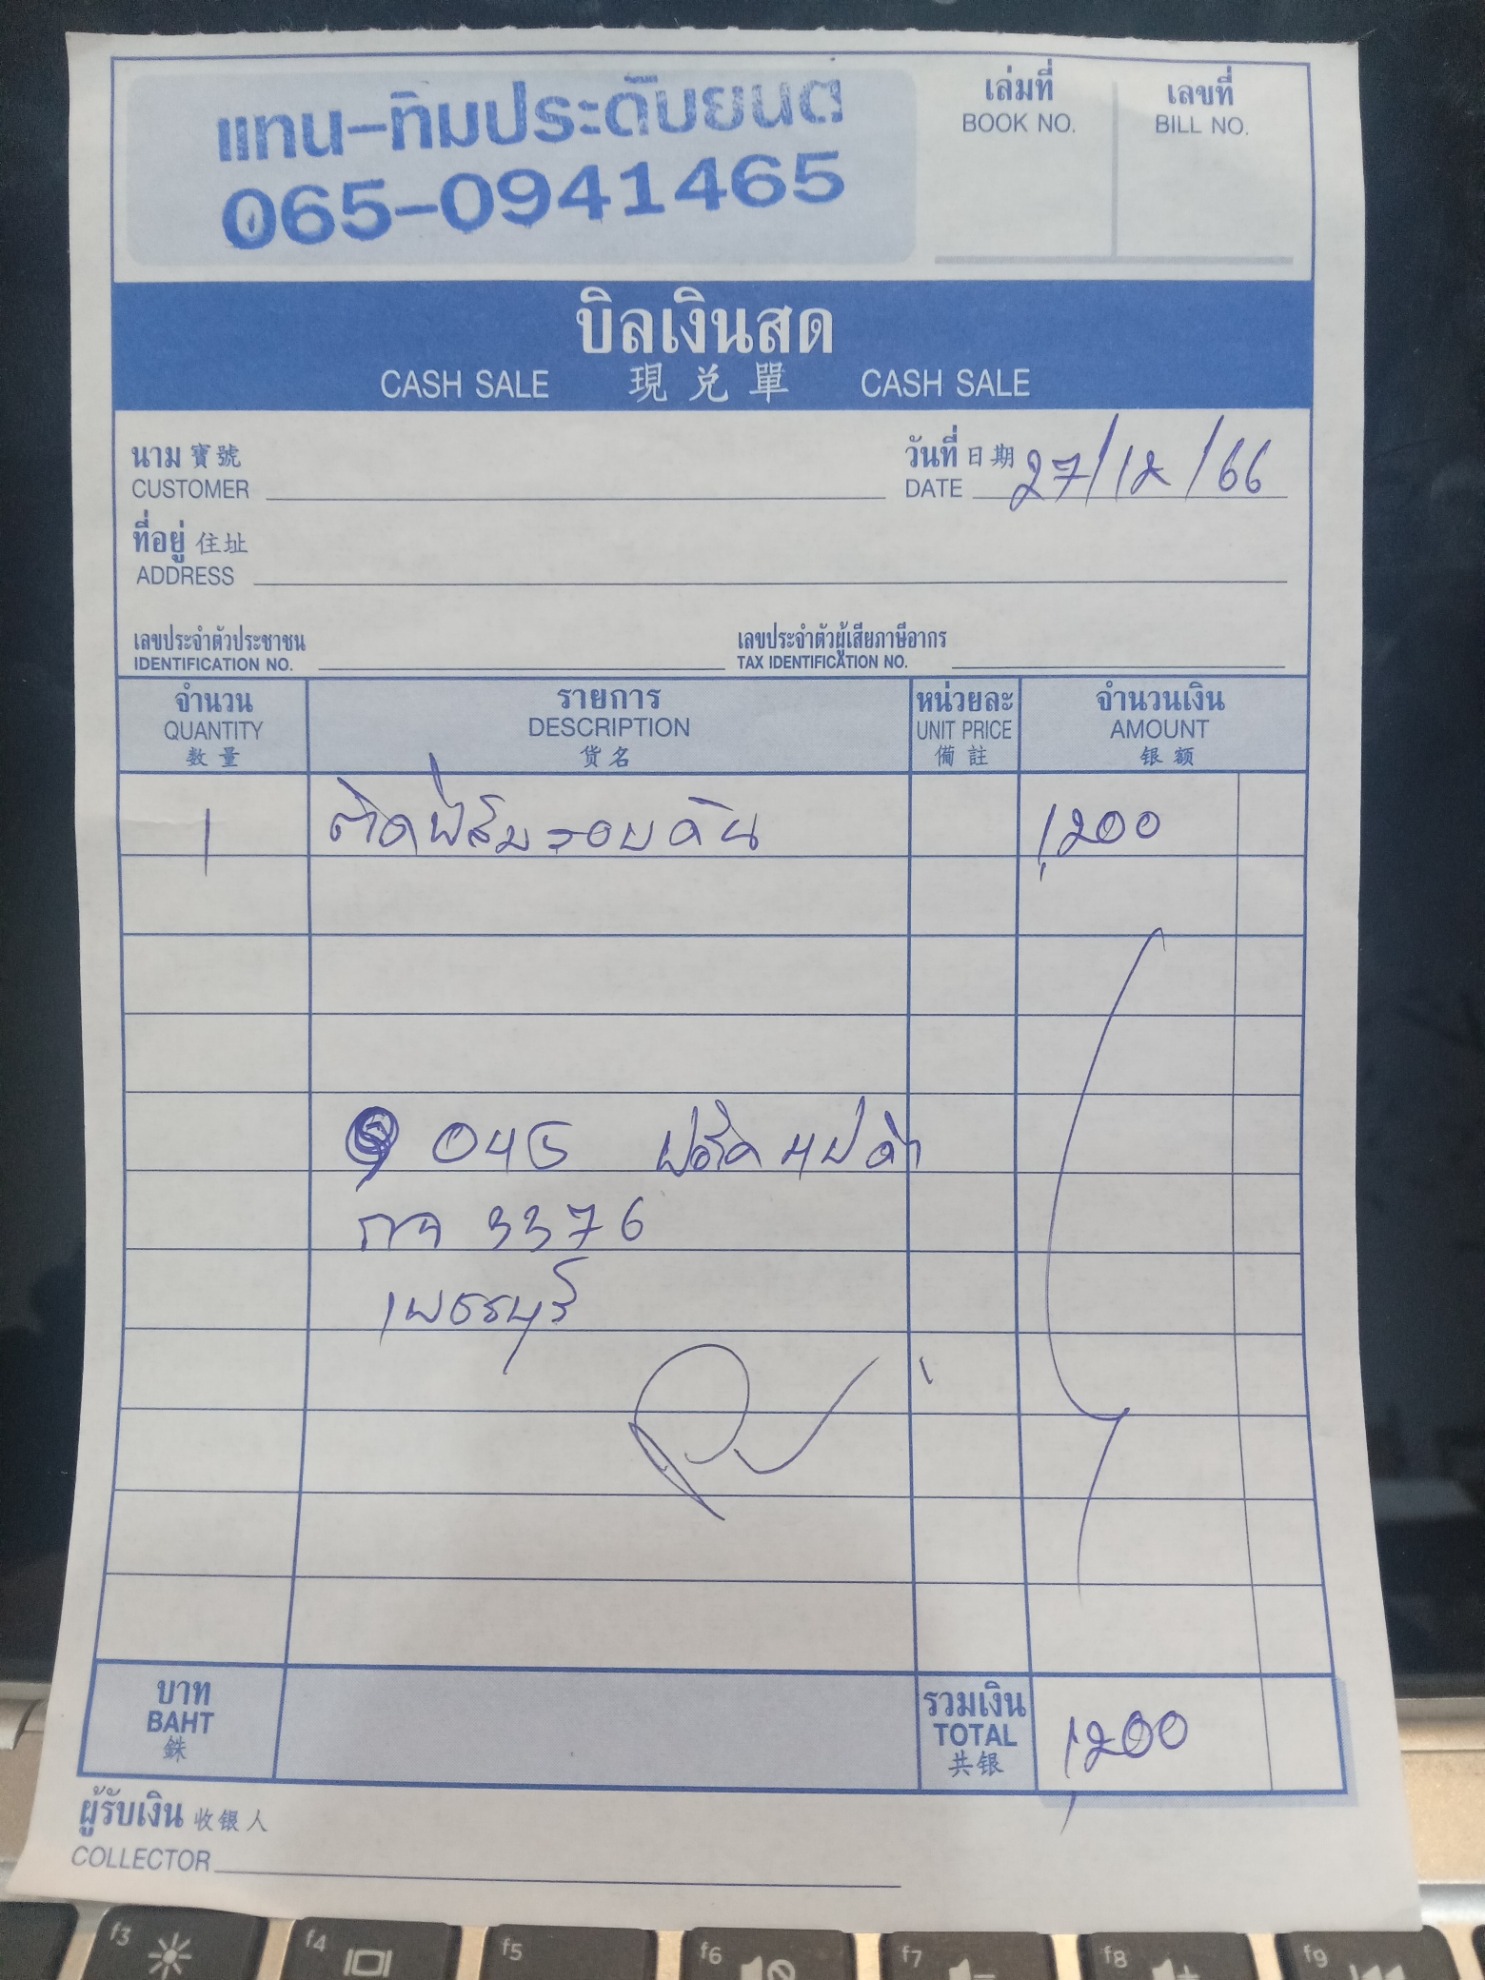 แทน-ทิมประดับยนต์
065-0941465
เล่มที่
BOOK NO.
เลขที่
BILL NO.
บิลเงินสด
CASH SALE 現兑單 CASH SALE
นาม 寶號
CUSTOMER
วันที่ 日期
DATE 27/12/66
ที่อยู่ 住址
ADDRESS
เลขประจำตัวประชาชน
IDENTIFICATION NO.
เลขประจำตัวผู้เสียภาษีอากร
TAX IDENTIFICATION NO.
จำนวน
QUANTITY
数量
รายการ
DESCRIPTION
货名
หน่วยละ
UNIT PRICE
備註
จำนวนเงิน
AMOUNT
银额
1 ติดฟิล์มรอบคัน 1,200
045
กจ 3376
เพชรบุรี
บาท
BAHT
銖
รวมเงิน
TOTAL
共银
1,200
ผู้รับเงิน 收银人
COLLECTOR
f3
f4
f5
f6
f7
f8
f9